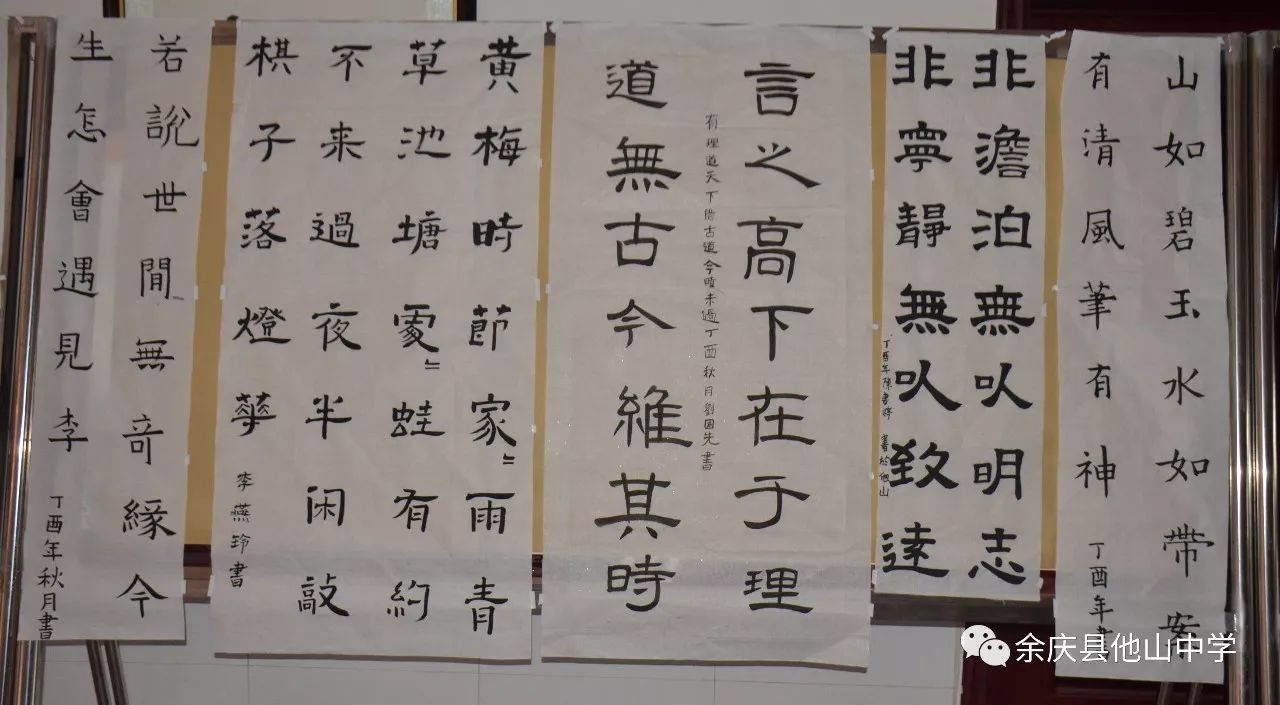 山如碧玉水如帶案
有清風筆有神
丁酉年
非澹泊無以明志
非寧靜無以致遠
丁酉年陳書婷 書於他山
言之高下在于理
道無古今維其時
有理道天下古道今未過丁酉秋月劉国先書
黄梅時節家〻雨青
草池塘處〻蛙有約
不来過夜半闲敲
棋子落燈華
李燕玲書
若說世間無奇緣今
生怎會遇見李
丁酉年秋月書
余庆县他山中学